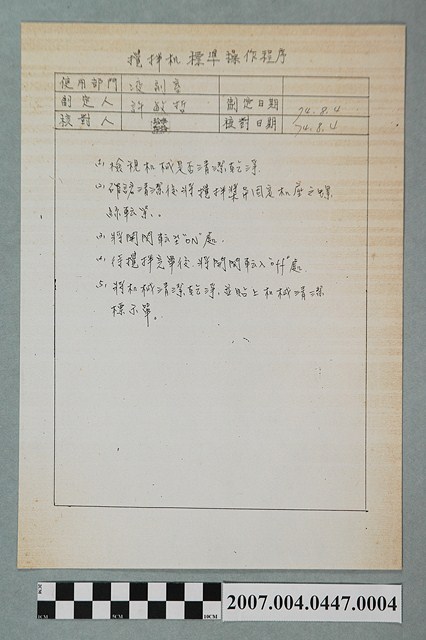 攪拌机標準操作程序
使用部門 液劑室
制定人 許敏哲 制定日期 74.8.4
校對人 校對日期 74.8.4
(1) 檢視机械是否清潔乾淨.
(2) 確認清潔後,將攪拌槳用固定机座之螺
絲転緊..
(3) 將開関転至"ON"處.
(4) 待攪拌完畢後,將開関転入"off"處
(5) 將机械清潔乾淨,並貼上机械清潔
標示單.
5CM
10CM
2007.004.0447.0004